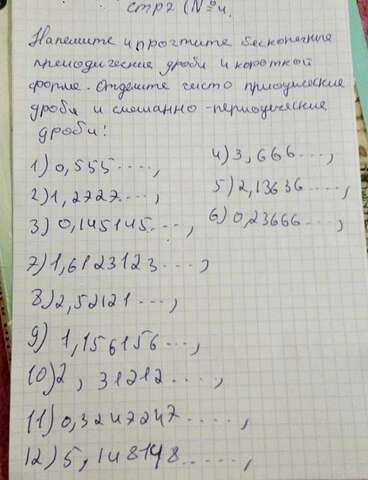 стр 2 (№ 4.
Напишите и прочтите бесконечные
преиодические дроби и короткой
форме. Отделите чисто приодические
дроби и смешанно-периодические
дроби!
1) 0,555....,
4) 3,666...,
2) 1,2727...,
5) 2,13636...,
3) 0,145145...,
6) 0,23666...,
7) 1,6123123...,
8) 2,52121...,
9) 1,156156...,
10) 2, 31212...,
11) 0,3247247.....,
12) 5,148148.....,